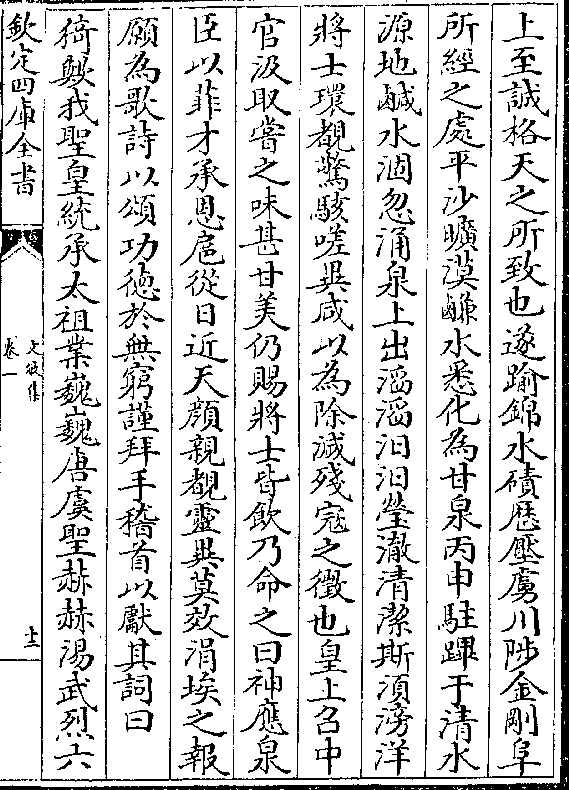 上至誠格天之所致也遂踰錦水磧歴壓虜川陟金剛阜
所經之處平沙曠漠鹻水悉化為甘泉丙申駐蹕于清水
源地鹹水涸忽涌泉上出滔滔汩汩瑩澈清潔斯須滂洋
將士環覩驚駭嗟異咸以為除滅殘冦之徴也皇上召中
官汲取嘗之味甚甘美仍賜將士皆飲乃命之曰神應泉
臣以菲才承恩扈從日近天顔親覩靈異莫效涓埃之報
願為歌詩以頌功徳於無窮謹拜手稽首以獻其詞曰
猗歟我聖皇統承太祖業巍巍唐虞聖赫赫湯武烈六
欽定四庫全書
文敏集
卷一
十三